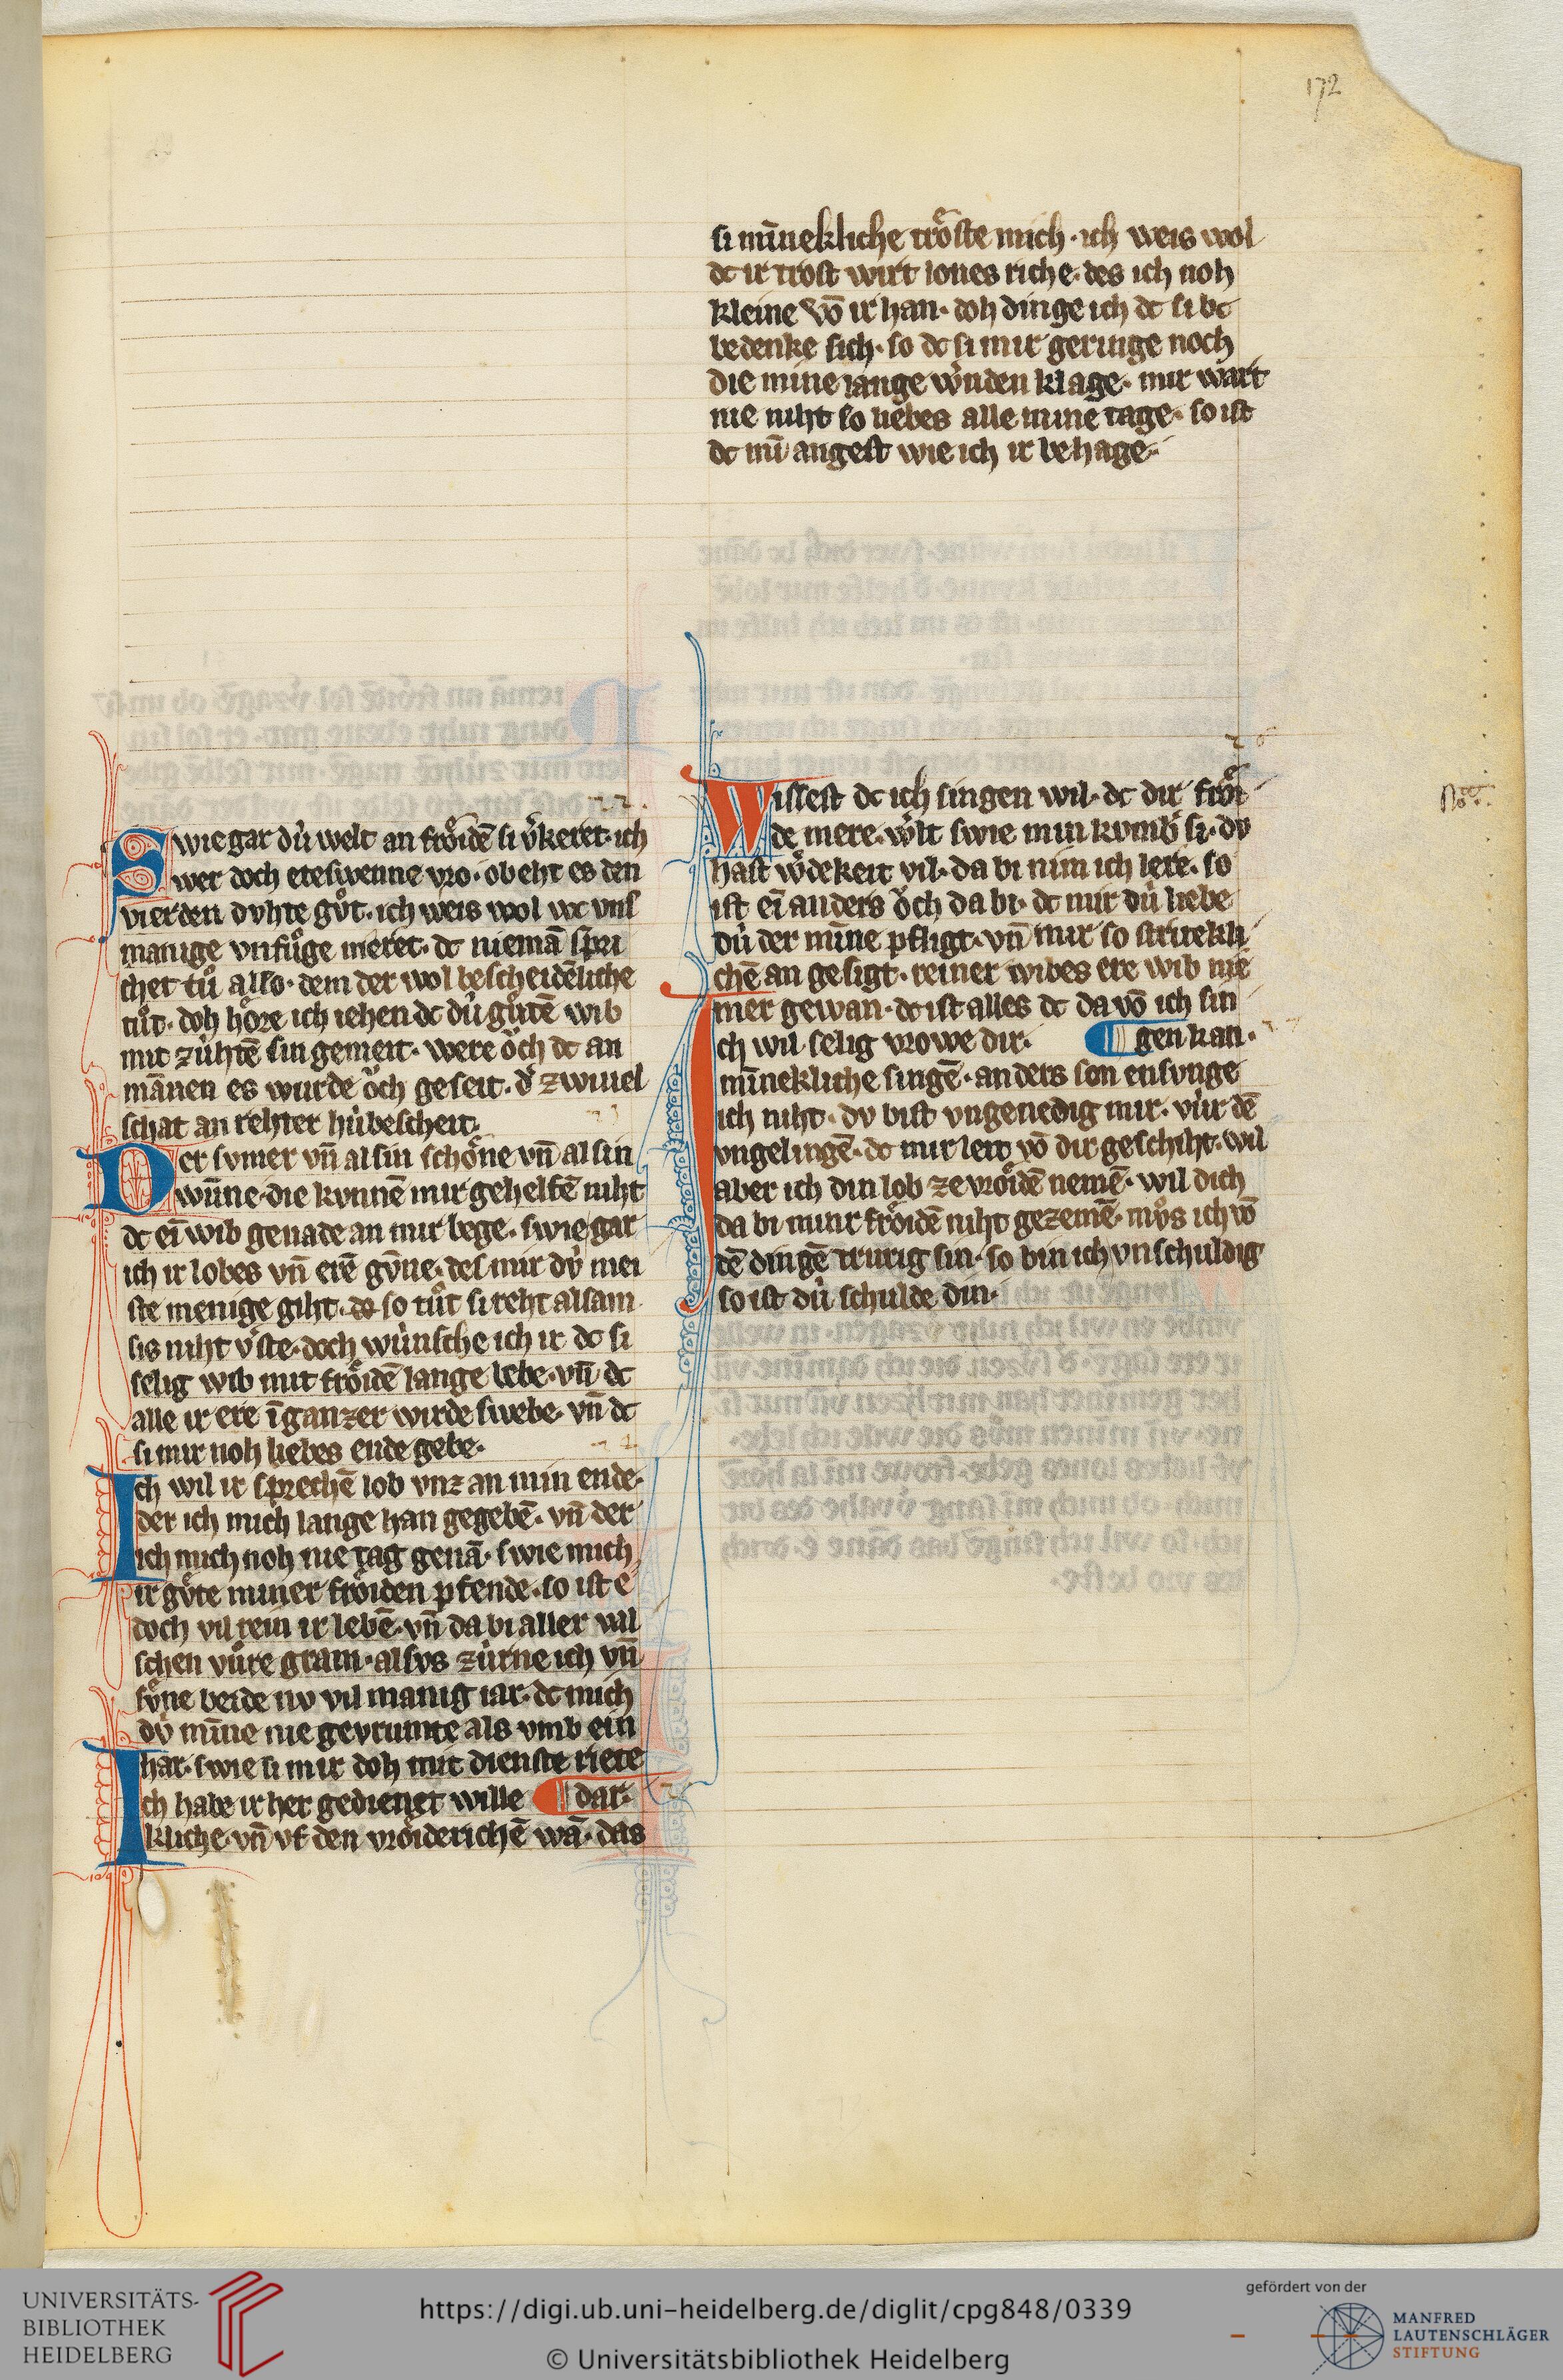 172
Swie gar dv̍ welt an frôidē si v̓keret · ich
wer doch eteswenne vro · ob eht es den
vierden dvhte gv̊t · ich weis wol wc vnſ
manige vnfůge meret · dc niemā spri
chet tů also · dem der wol bescheidēliche
tůt · doh hôre ich iehen dc dv̍ gůtē wib
mit zv̍htē sin gemeit · were ôch dc an
mānen es wurde ôch geseit · d̓ zwiuel
schat an rehter hv̍bescheit ·
Der svmer vn̄ al sin schône vn̄ al sin
wūne · die kvnnē mir gehelfē niht
dc eī wib genade an mir bege · swie gar
ich ir lobes vn̄ erē gv̄ne · des mir dv̍ mei
ste menige giht · do so tůt si reht alsam
sis niht v̓ste · doch wv̍nsche ich ir dc si
selig wib mit frôidē lange lebe · vn̄ dc
alle ir ere ī ganzer wirde swebe · vn̄ dc
si mir noh liebes ende gebe ·
Ich wil ir sprechē lob vnz an min ende ·
der ich mich lange han gegebē · vn̄ der
ich mich noh nie tag genā · swie mich
ir gv̊te miner frôiden pfende · so ist e
doch vil rein ir lebē · vn̄ da bi aller val
schen vůre gram · alsvs zv̍rne ich vn̄
sv̊ne beide nv vil manig iar · dc mich
dv̍ mīne nie gevrumte als vmb ein
har · swie si mir doh mit dienste riete
Ich habe ir her gedienet wille dar ·
kliche · vn̄ vf den vrôiderichē wā · das
si mīnekliche trôste mich · ich weis wol
dc ir trost wirt lones riche · des ich noh
kleine vō ir han · doh dinge ich dc si bc
bedenke sich · so dc si mir geringe noch
die mine lange wv̍nden klage · mir wart
nie niht so liebes alle mine tage · so ist
dc mī angest wie ich ir behage ·
Wissest dc ich singen wil · dc dir frôi
de mere · w̓lt swie min kvmb̓ si · dv
hast w̓dekeit vil · da bi nim ich lere · so
ist eī anders ôch da bi · dc mir dv̍ liebe
dv̍ der mīne pfligt · vn̄ mir so stritekli
chē an gesigt · reiner wibes ere wib nie
mer gewan · dc ist alles dc da vō ich sin
gen kan ·
Ich wil selig vrowe dir ·
mīnekliche singē · anders son ensvnge
ich niht · dv bist vngenedig mir · vv̍r dē
vngelingē · dc mir leit vō dir geschiht · wil
aber ich din lob ze vrôidē nemē · wil dich
da bi miñr frôidē niht gezemē · můs ich vō
dē dingē trurig sin · so bin ich vnschuldig
so ist dv̍ schulde din ·
UNIVERSITÄTS-
BIBLIOTHEK
HEIDELBERG
https://digi.ub.uni-heidelberg.de/diglit/cpg848/0339
© Universitätsbibliothek Heidelberg
gefördert von der
MANFRED
LAUTENSCHLÄGER
STIFTUNG